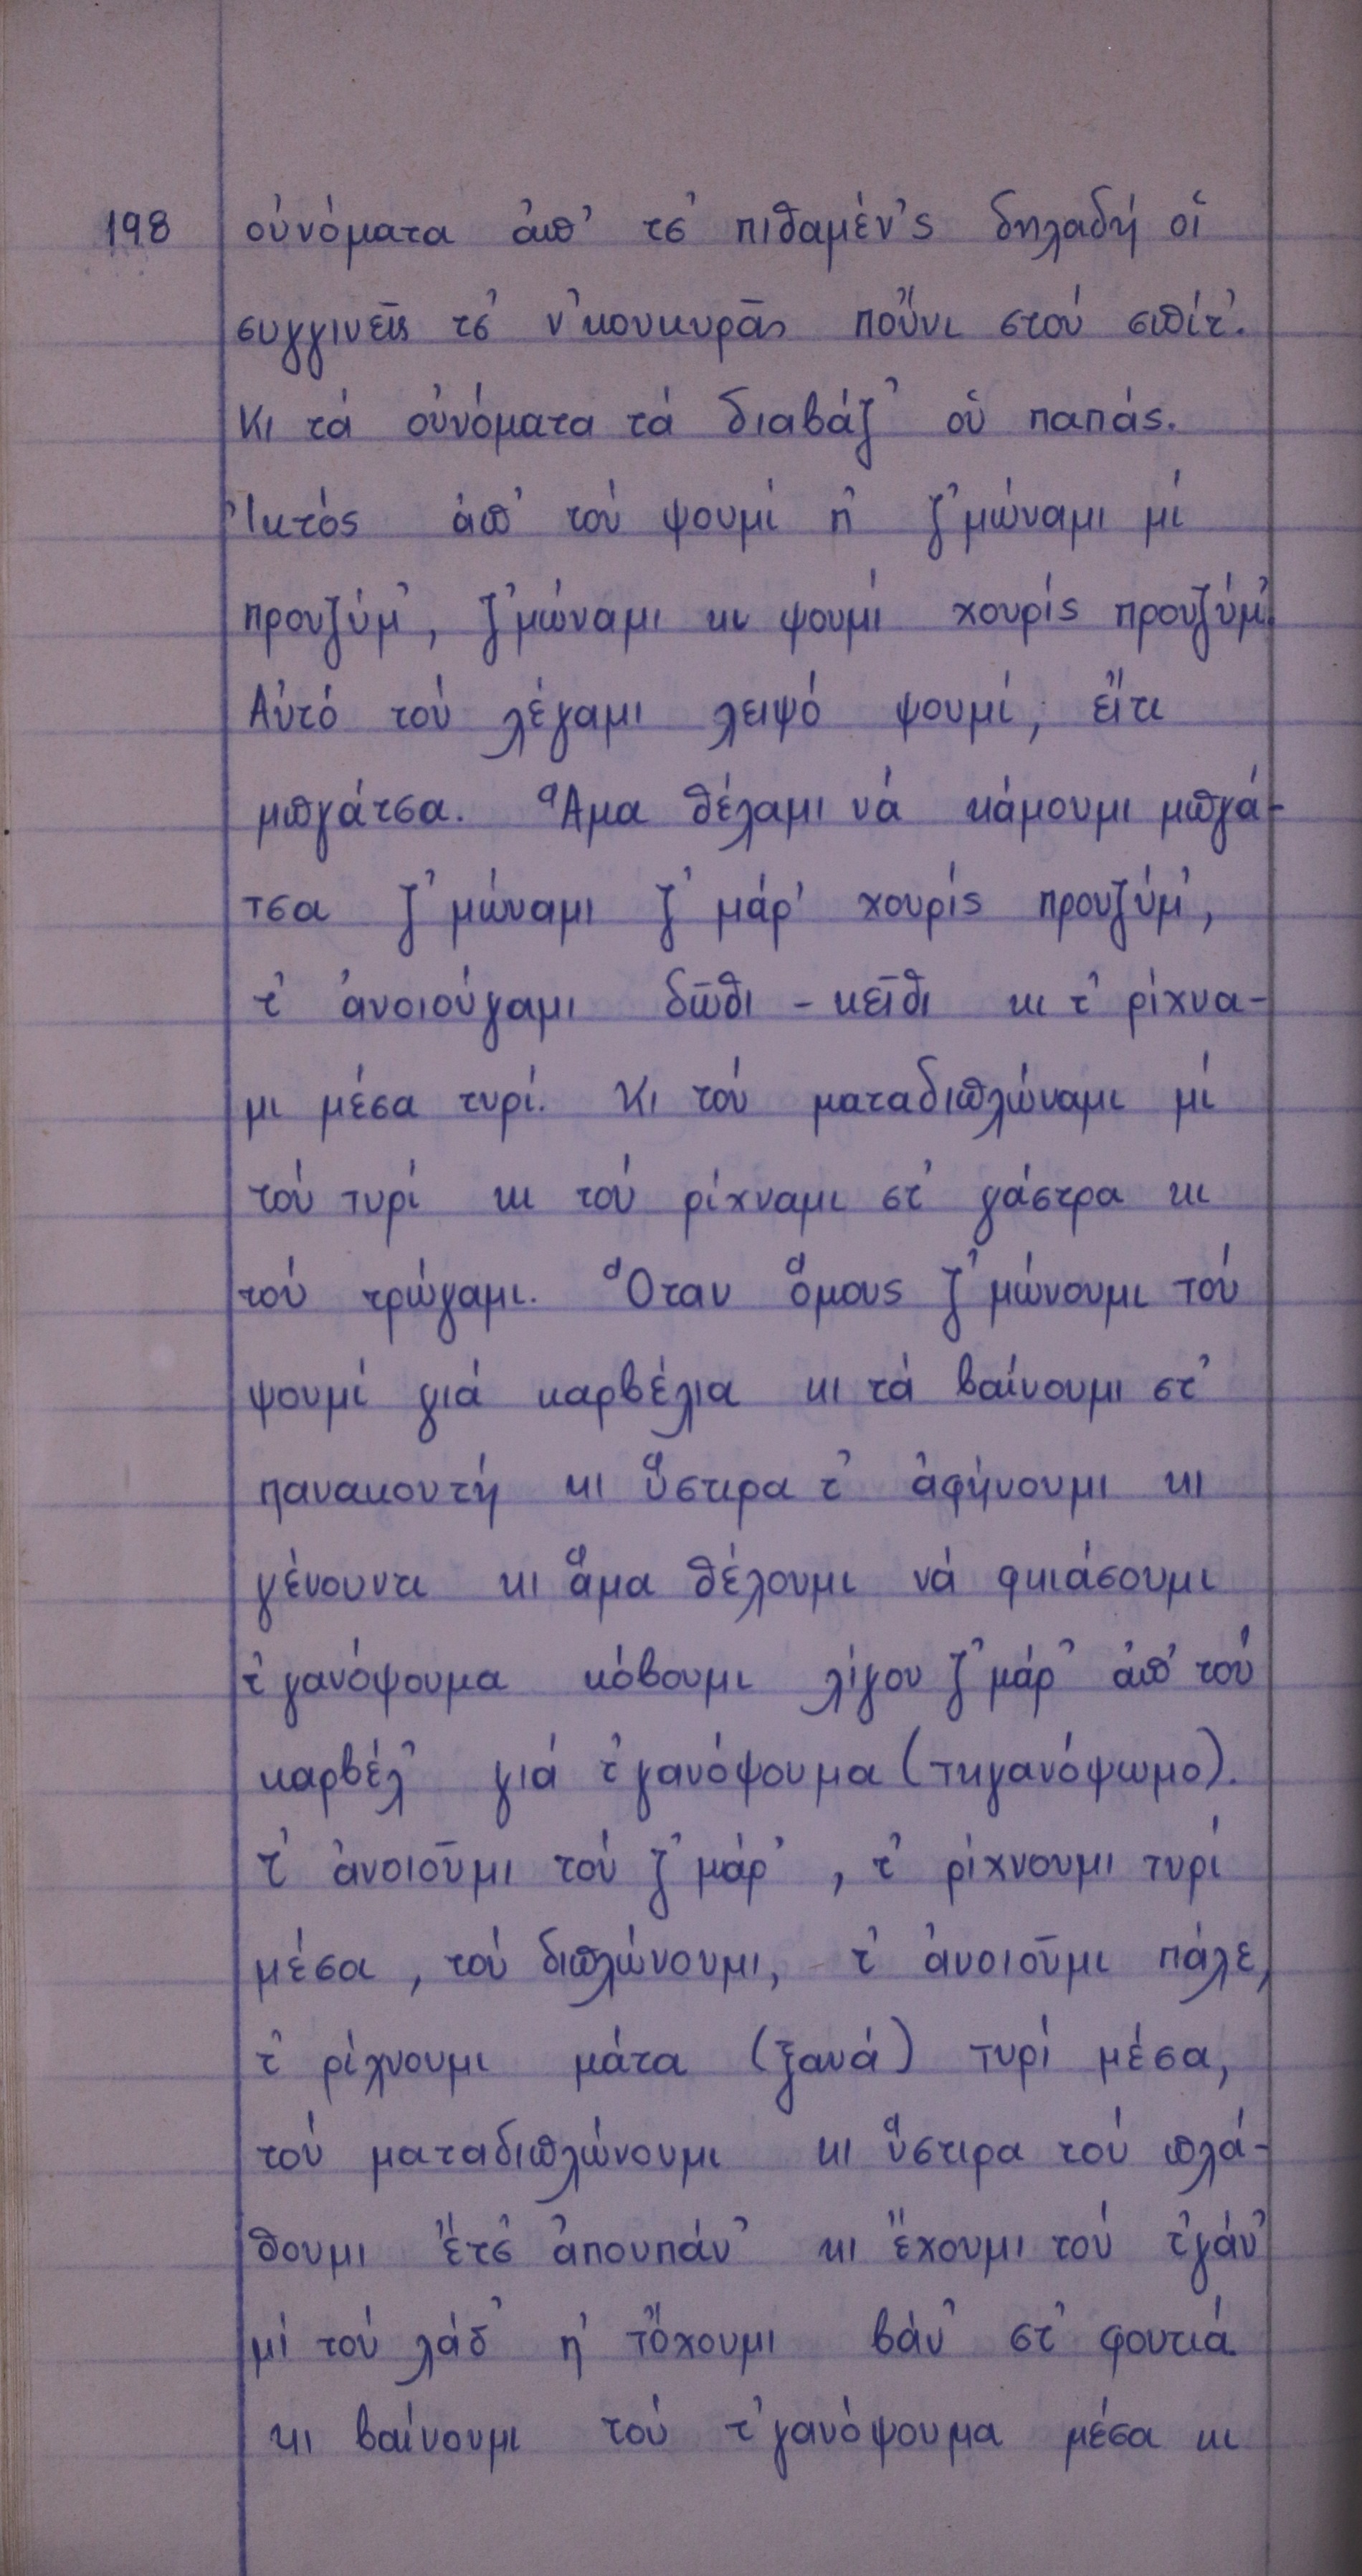 198 οὐνόματα ἀπ' τσ' πιθαμέν'ς δηλαδή οἱ
συγγινεῖς τσ' ν'κουκυρᾶς ποὖνι στού σπίτ'.
Κι τά οὐνόματα τά διαβάζ' οὑ παπάς.
Ἰκτός ἀπ' τού ψουμί π' ζ'μώναμι μί
προυζύμ', ζ'μώναμι κι ψουμί χουρίς προυζύμ'.
Αὐτό τού λέγαμι λειψό ψουμί, εἴτι
μπγάτσα. Ἅμα θέλαμι νά κάμουμι μπγά-
τσα ζ'μώναμι ζ'μάρ' χουρίς προυζύμ',
τ' ἀνοιούγαμι δῶθι - κεῖθι κι τ' ρίχνα-
μι μέσα τυρί. Κι τού ματαδιπλώναμι μί
τού τυρί κι τού ρίχναμι στ' γάστρα κι
τού τρώγαμι. Ὅταν ὅμους ζ'μώνουμι τού
ψουμί γιά καρβέλια κι τά βαίνουμι στ'
πανακουτή κι ὕστιρα τ' ἀφήνουμι κι
γένουντι κι ἅμα θέλουμι νά φκιάσουμι
τ'γανόψουμα κόβουμι λίγου ζ'μάρ' ἀπ' τού
καρβέλ' γιά τ'γανόψουμα (τηγανόψωμο).
τ' ἀνοιοῦμι τού ζ'μάρ', τ' ρίχνουμι τυρί
μέσα, τού διπλώνουμι, τ' ἀνοιοῦμι πάλε,
τ' ρίχνουμι μάτα (ξανά) τυρί μέσα,
τού ματαδιπλώνουμι κι ὕστιρα τού πλά-
θουμι ἔτσ' ἀπουπάν' κι ἔχουμι τού τ'γάν'
μί τού λάδ' π' τὄχουμι βάν' στ' φουτιά
κι βαίνουμι τού τ'γανόψουμα μέσα κι